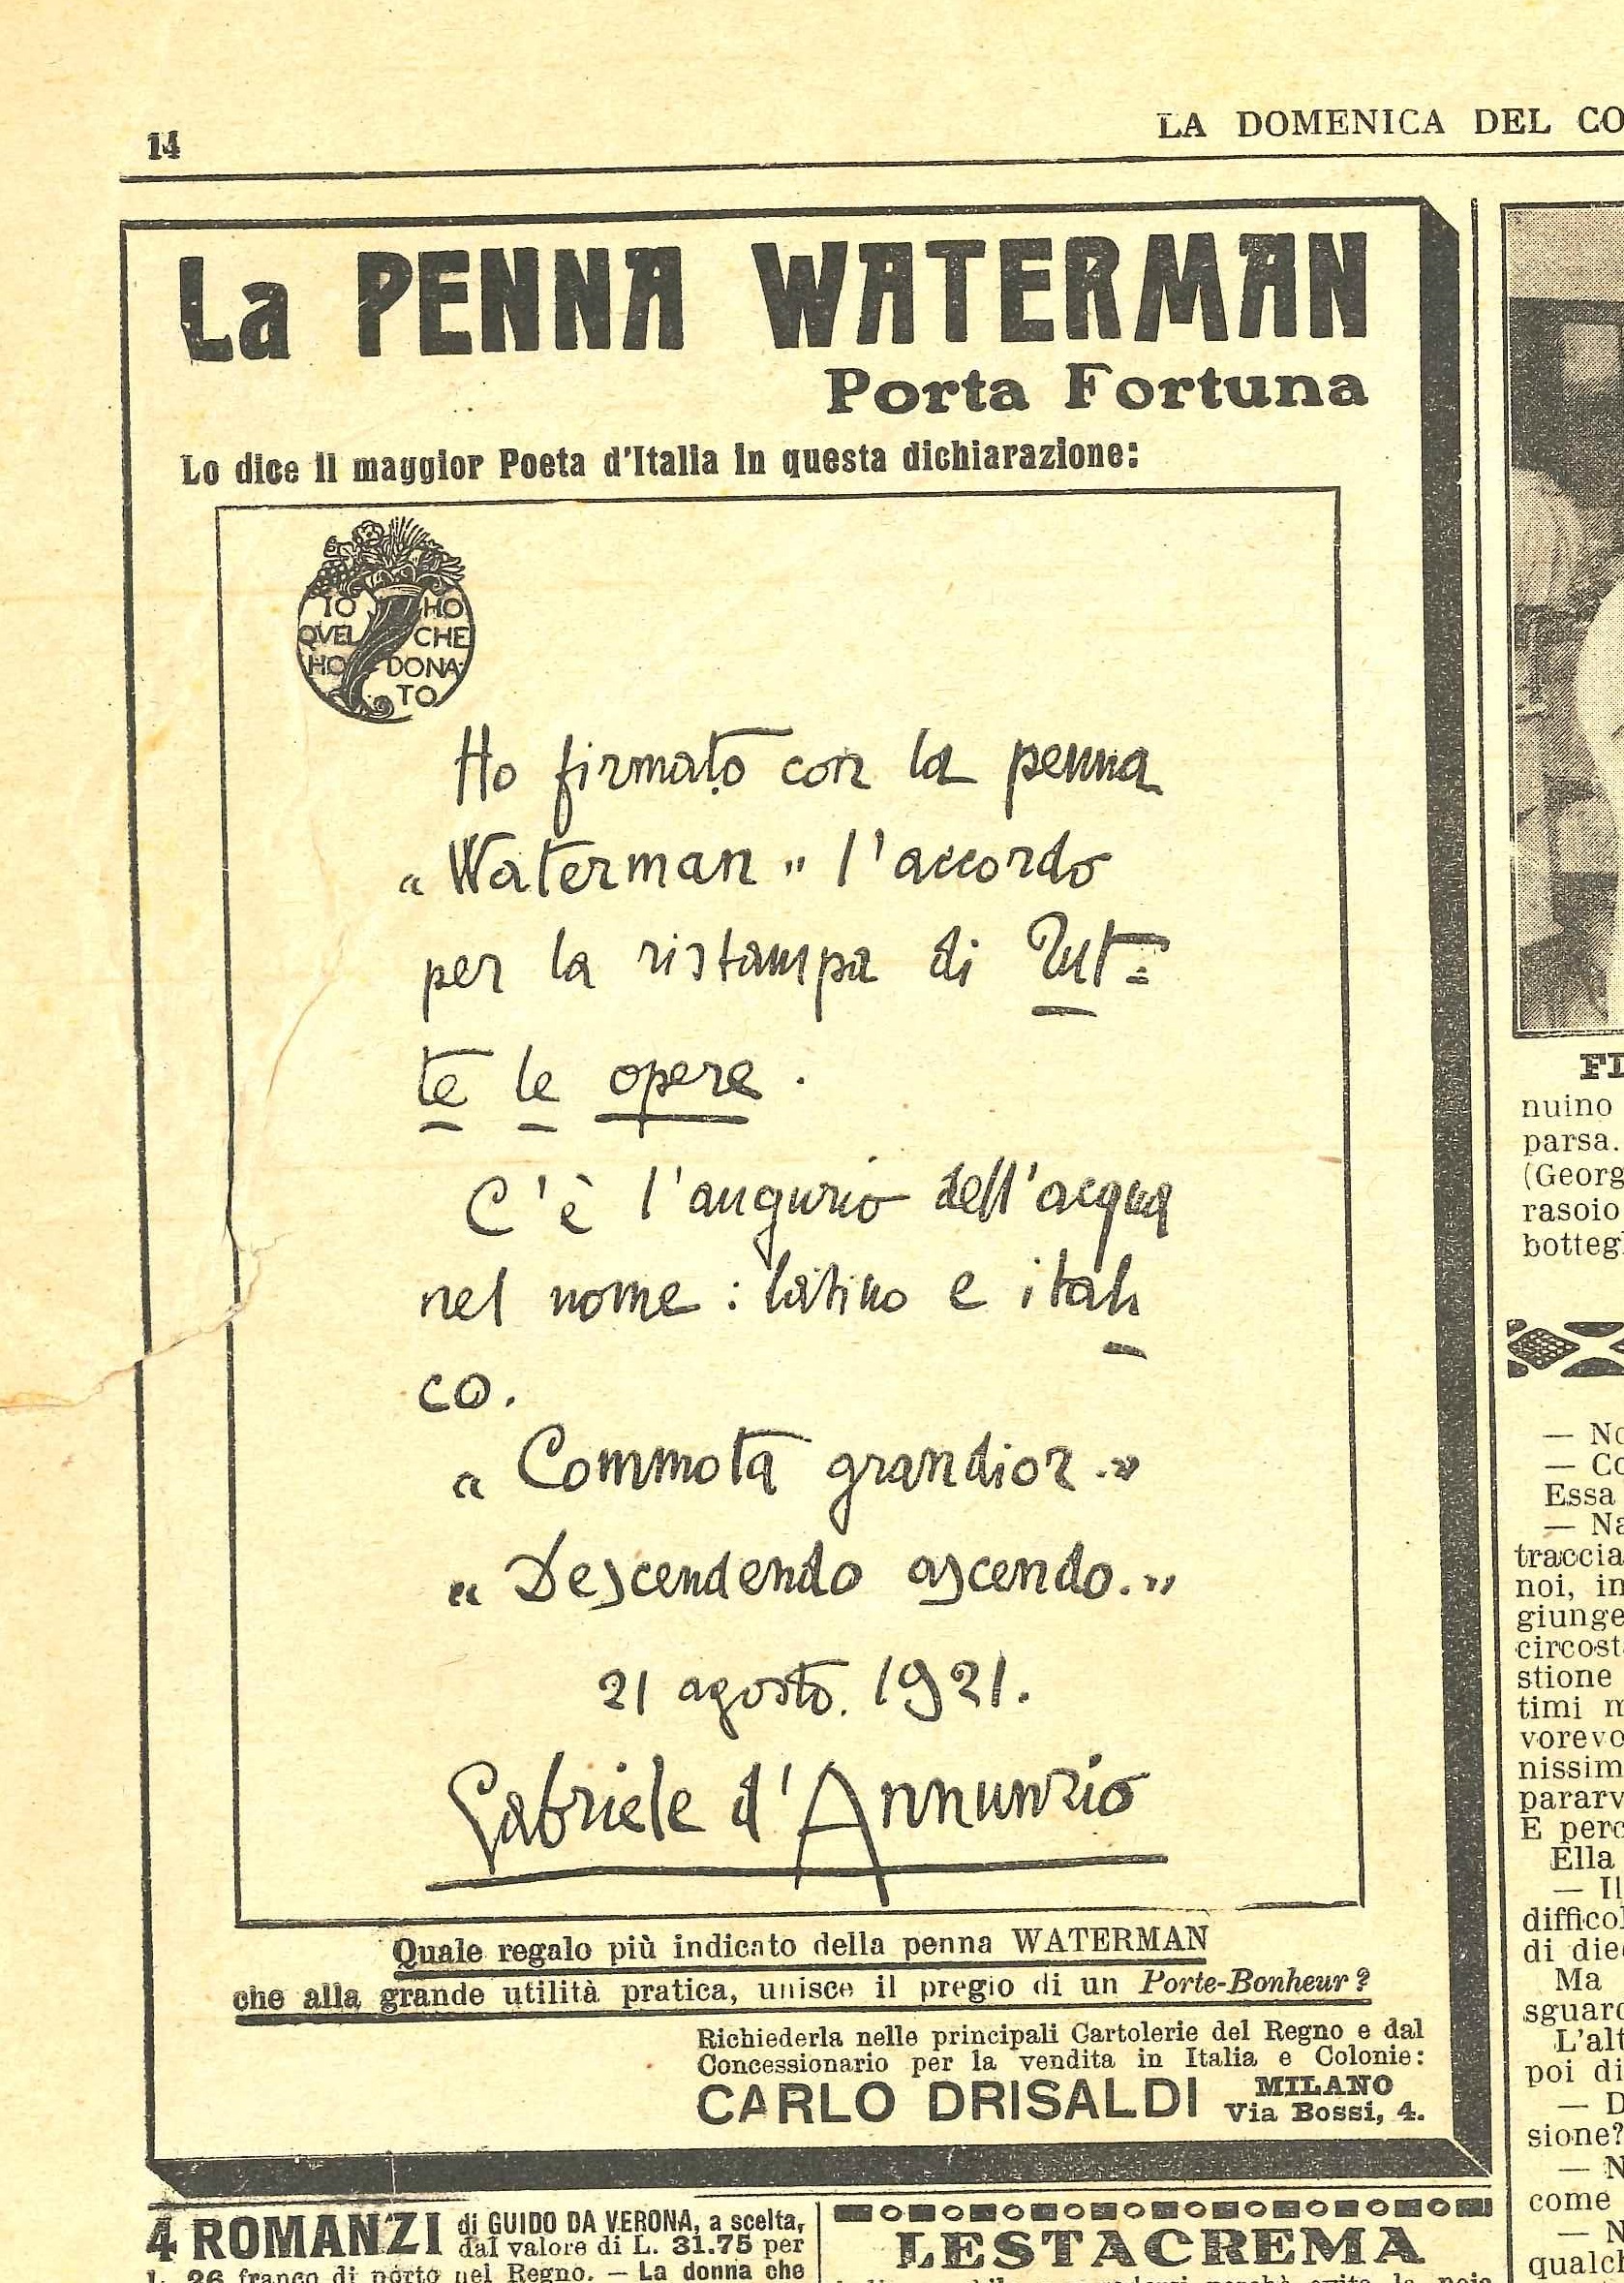 14
LA DOMENICA DEL CO
La PENNA WATERMAN
Porta Fortuna
Lo dice il maggior Poeta d'Italia in questa dichiarazione:
IO HO
QVEL CHE
HO DONA-
TO
Ho firmato con la penna
« Waterman » l'accordo
per la ristampa di Tut=
te le opere.
C'è l'augurio dell'acqua
nel nome: latino e itali
co.
« Commota grandior.»
« Descendendo ascendo.»
21 agosto. 1921.
Gabriele d'Annunzio
Quale regalo più indicato della penna WATERMAN
che alla grande utilità pratica, unisce il pregio di un Porte-Bonheur?
Richiederla nelle principali Cartolerie del Regno e dal
Concessionario per la vendita in Italia e Colonie:
CARLO DRISALDI MILANO
Via Bossi, 4.
4 ROMANZI di GUIDO DA VERONA, a scelta,
dal valore di L. 31.75 per
L. 26 franco di porto nel Regno. — La donna che
LESTACREMA
FI
nuino
parsa.
(Georg
rasoio
botteg
— No
— Co
Essa
— Na
traccia
noi, in
giunge
circost
stione
timi m
vorevo
nissim
pararv
E perc
Ella
— Il
difficol
di diec
Ma
sguard
L'alt
poi di
— D
sione?
— N
come
— N
qualch